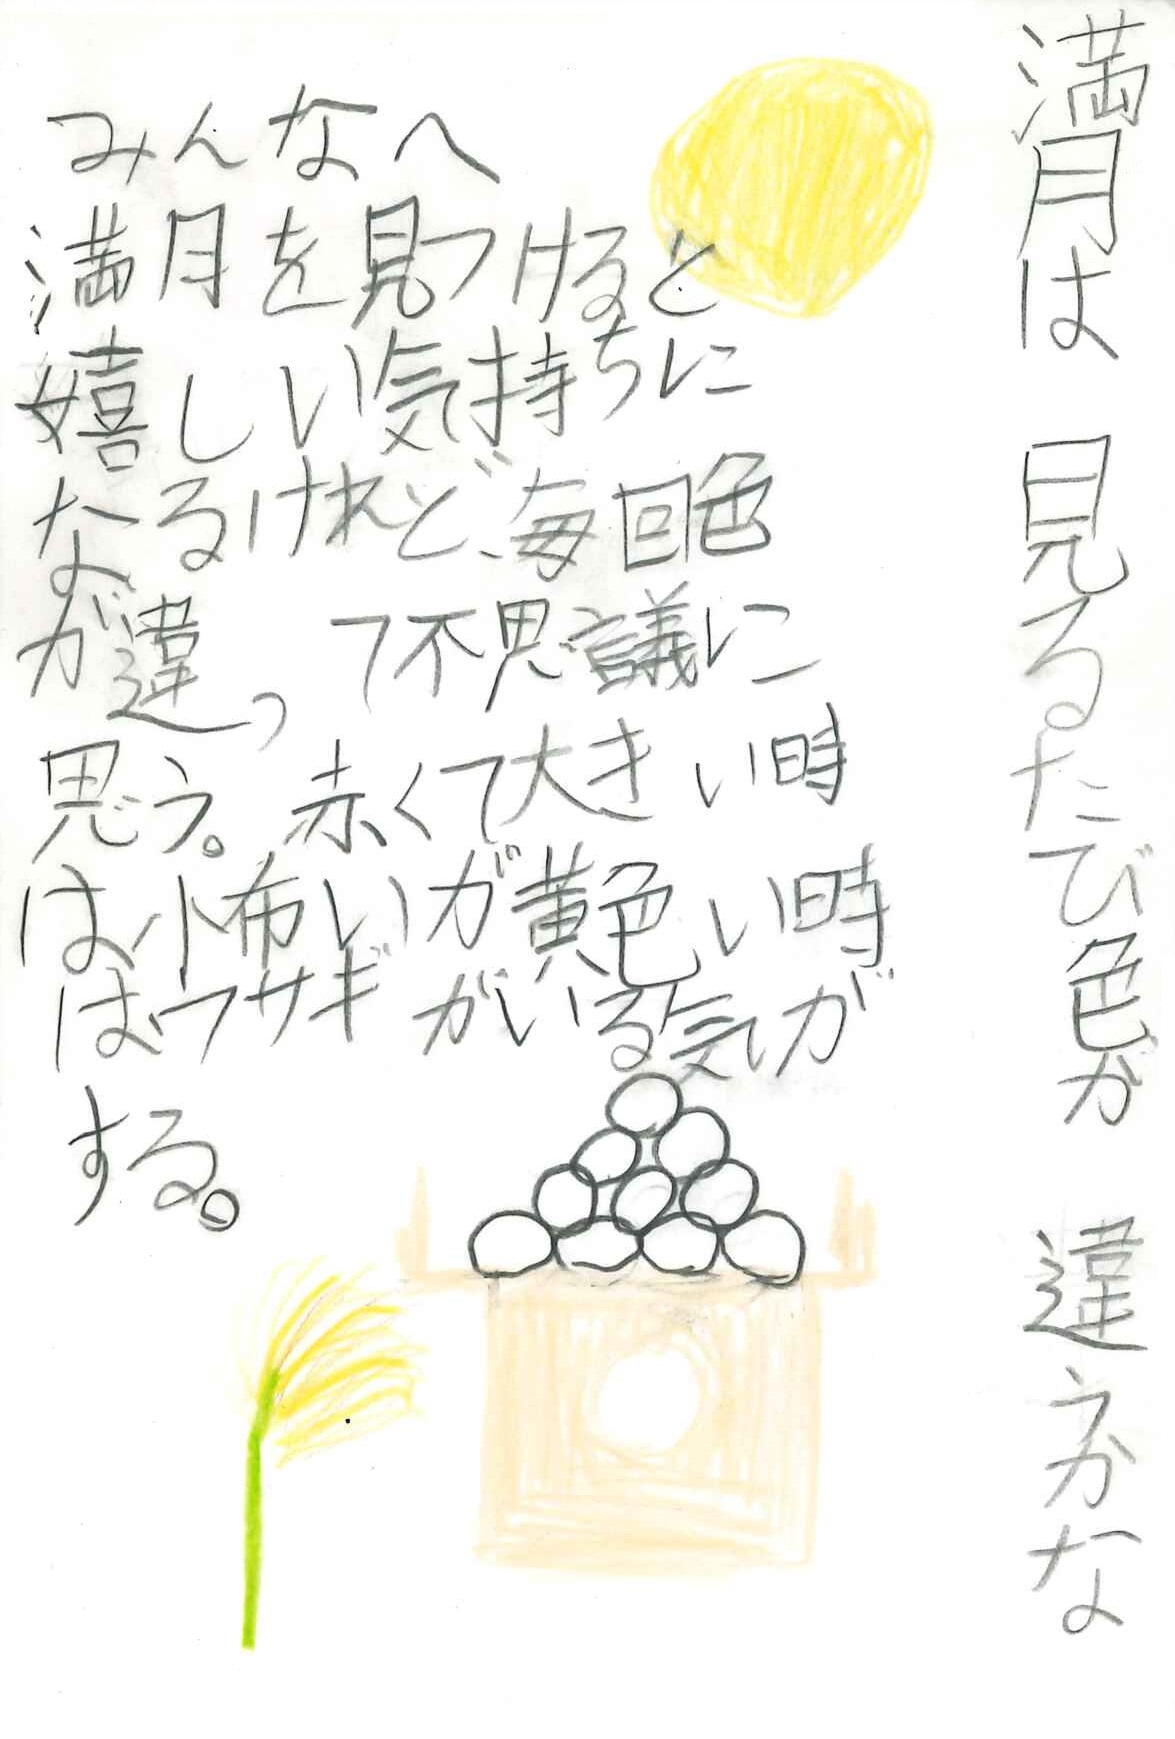 満月は 見るたび色が 違うかな
みんなへ
満月を見つけると
嬉しい気持ちに
なるけれど、毎回色
が違って不思議に
思う。赤くて大きい時
は、怖いが黄色い時
はウサギがいる気が
する。